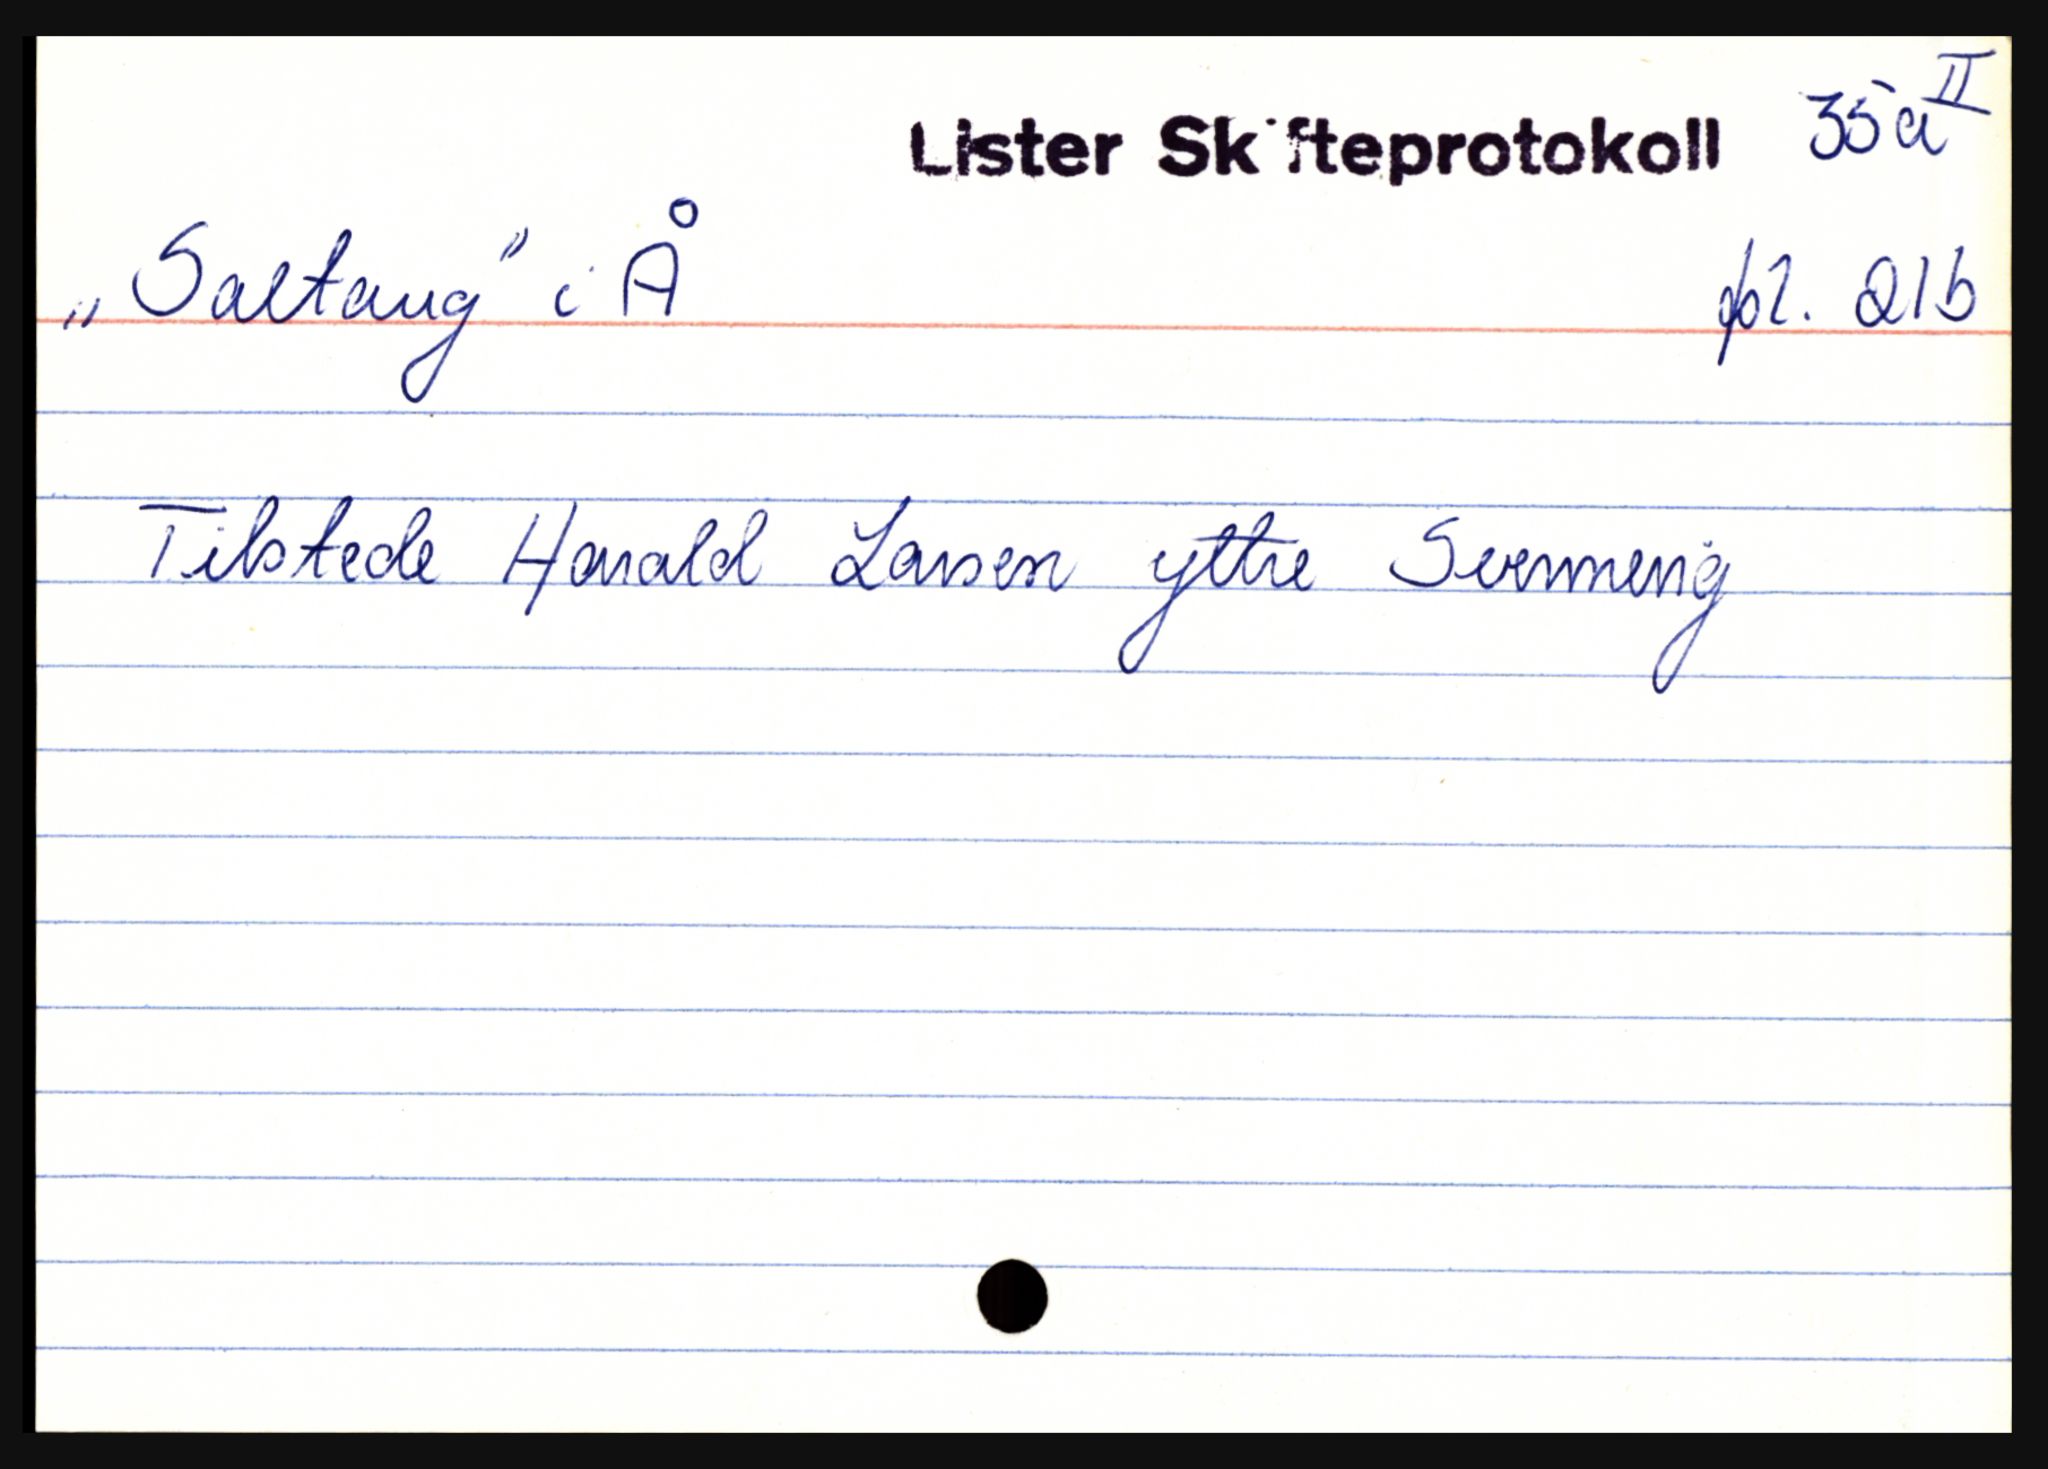 Lister Skifteprotokoll 35a II
„Saltang" i Å fol. 21b
Tilstede Harald Larsen yttre Svenneng